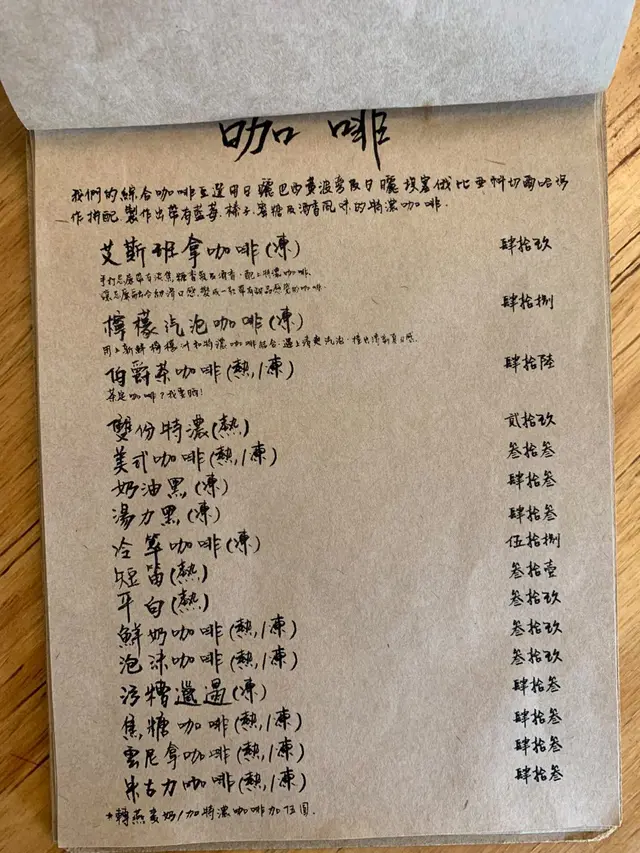 咖啡
我們的綜合咖啡豆選用日曬巴西黃波旁及日曬埃塞俄比亞
作拼配，製作出帶有藍莓、榛子、蜜糖及酒香風味的特濃咖啡。
艾斯班拿咖啡(凍) 肆拾玖
檸檬汽泡咖啡(凍) 肆拾捌
用上新鮮檸檬汁和特濃咖啡結合，遇上清爽汽泡，
伯爵茶咖啡(熱/凍) 肆拾陸
茶定咖啡？我要晒！
雙份特濃(熱) 貳拾玖
美式咖啡(熱/凍) 叁拾叁
奶油黑(凍) 肆拾叁
湯力黑(凍) 肆拾叁
冷萃咖啡(凍) 伍拾捌
短笛(熱) 叁拾壹
平白(熱) 叁拾玖
鮮奶咖啡(熱/凍) 叁拾玖
泡沫咖啡(熱/凍) 叁拾玖
污糟邋遢(凍) 肆拾叁
焦糖咖啡(熱/凍) 肆拾叁
雲尼拿咖啡(熱/凍) 肆拾叁
朱古力咖啡(熱/凍) 肆拾叁
*轉燕麥奶/加特濃咖啡加伍圓。